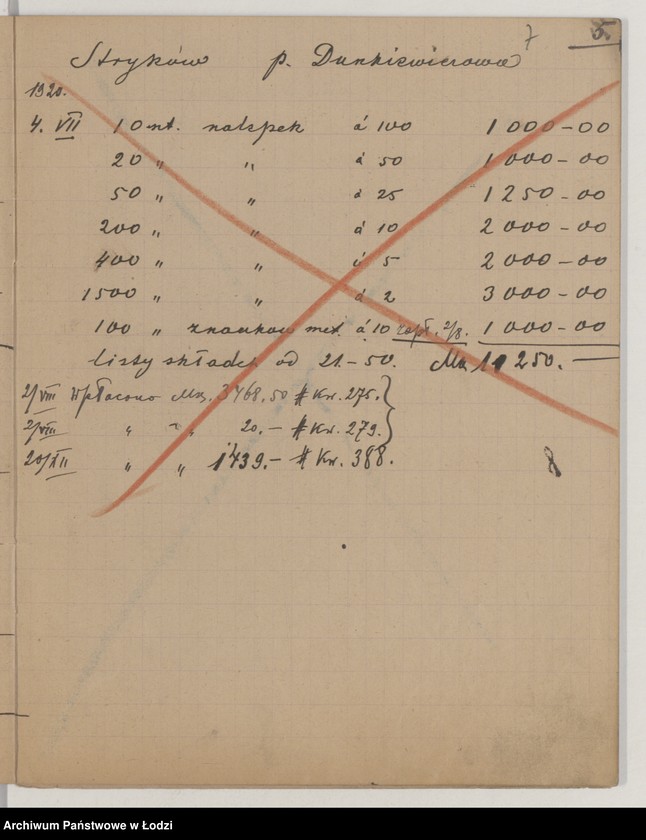 7 5.
Stryków p. Dunkiewiczowa
1920.
4. VII 10 nt. nalepek á 100 1000-00
20 " " á 50 1000-00
50 " " á 25 1250-00
200 " " á 10 2000-00
400 " " á 5 2000-00
1500 " " á 2 3000-00
100 " znaczków met. á 10 zapł. 2/8. 1000-00
listy składk od 21.-50. Mk 11 250.—
2/VIII Wpłacono Mk. 3468.50 # Kw. 275.
2/VIII " " 20.- # Kw. 279.
20/XII " " 1439.- # Kw. 388.
Archiwum Państwowe w Łodzi